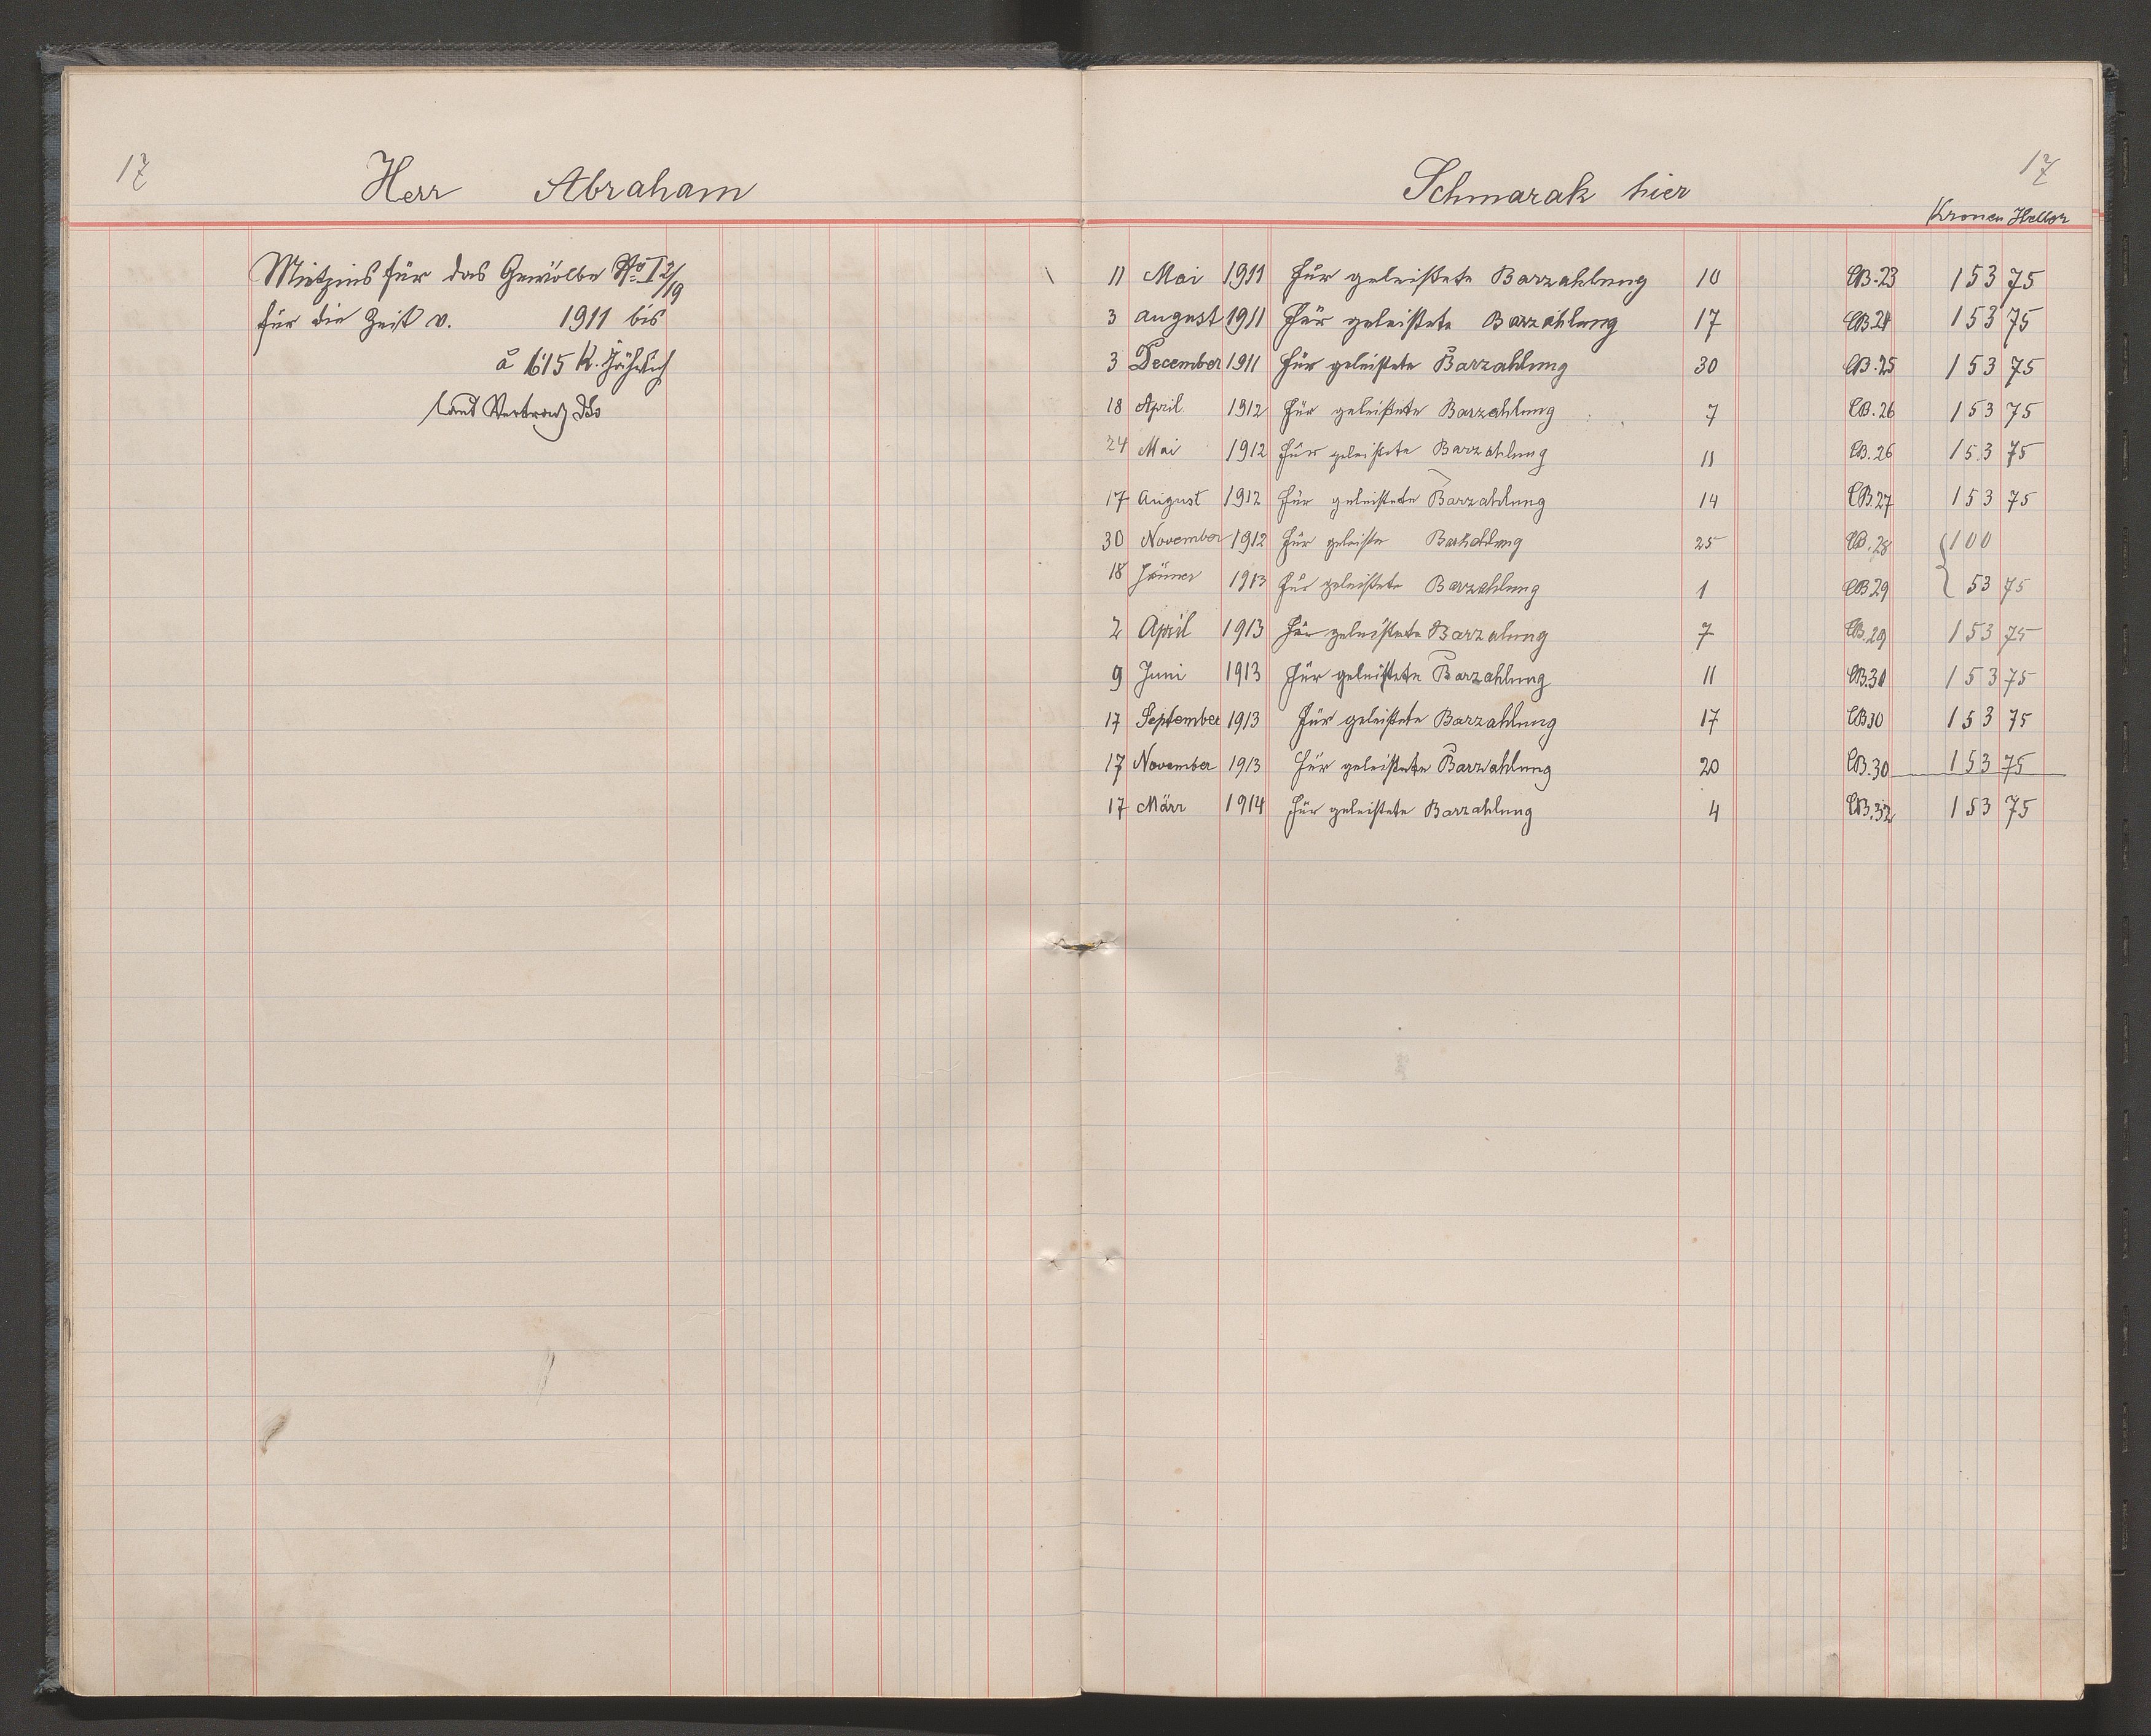 17 Herr Abraham
Schmarak hier 17
Kronen Heller
Mietzins für das Gewölbe No I 2/19
für die Zeit v. 1911 bis
à 615 K. Jährlich
laut Vertrag dto
11 Mai 1911 für geleistete Barzahlung 10 CB.23 153 75
3 August 1911 Für geleistete Barzahlung 17 CB.24 153 75
3 December 1911 für geleistete Barzahlung 30 CB.25 153 75
18 April 1912 für geleistete Barzahlung 7 CB.26 153 75
24 Mai 1912 für geleistete Barzahlung 11 CB.26 153 75
17 August 1912 für geleistete Barzahlung 14 CB.27 153 75
30 November 1912 für geleiste Barzahlung 25 CB.28 100
18 Jänner 1913 für geleistete Barzahlung 1 CB29 53 75
2 April 1913 für geleistete Barzalung 7 CB.29 153 75
9 Juni 1913 für geleistete Barzahlung 11 CB.30 153 75
17 September 1913 Für geleistete Barzahlung 17 CB30 153 75
17 November 1913 für geleistete Barzahlung 20 CB.30 153 75
17 März 1914 für geleistete Barzahlung 4 CB.32 153 75